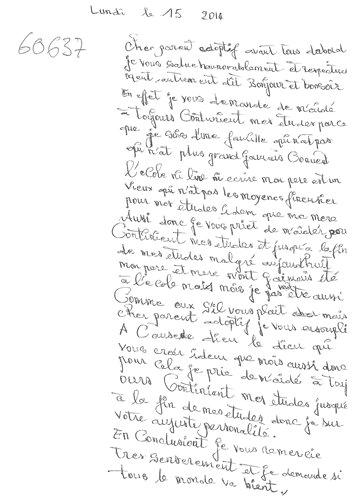 Lundi le 15 2014
60637
Cher parent adoptif avant tous dabord
je vous salue honorablement et respectueu
sement, autrement dit Bonjour et bonsoir
En effet je vous demande de m'aidé
à toujours Contunient mes études parce
que je suis d'une famille qui n'at pas
qui n'at plus grand
l'ecole ni lire ni ecrire mon pere est un
vieux qui n'at pas les moyens financier
pour mes études idem que ma mere
Aussi donc je vous priet de m'aider pour
Continient mes etudes et jusqu'a la fin
de mes études malgré aujourd'huit
mon pare et mere n'ont gaimais été
à l'ecole mais mois je pas être aussi
Comme eux S'il vous plait cher mais
cher parent adoptif je vous
A Cause de dieu le dieu qui
vous idem que mois aussi donc
pour cela je prie de m'aidé à touj
ours Continient mes etudes jusque
à la fin de mes etudes donc je sur
votre auguste personalité.
En Conclusient je vous remercie
tres serserement et je demande si
tous le monde va bient.